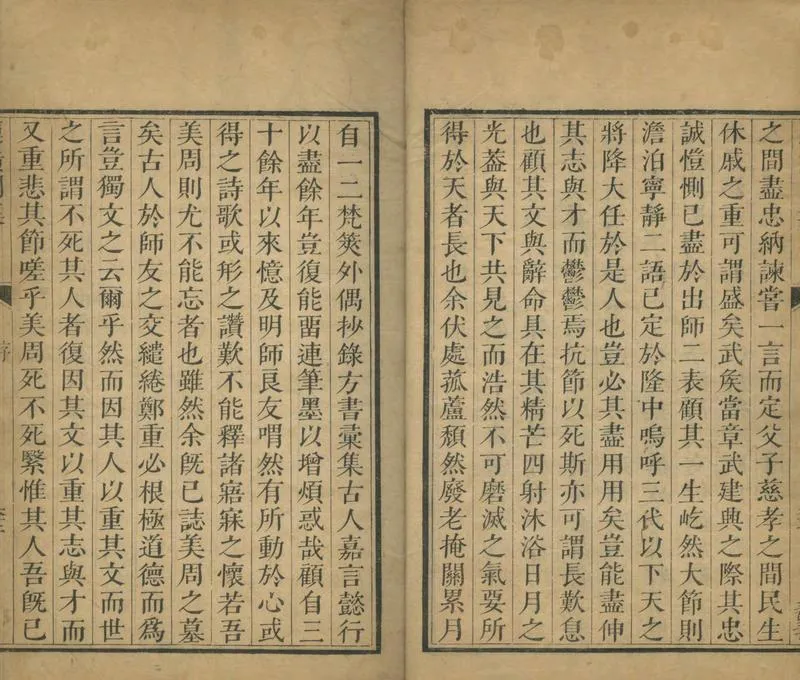 之間盡忠納諫嘗一言而定父子慈孝之間民生
休戚之重可謂盛矣武矦當章武建興之際其忠
誠愷惻已盡於出師二表顧其一生屹然大節則
澹泊寧靜二語已定於隆中嗚呼三代以下天之
將降大任於是人也豈必其盡用用矣豈能盡伸
其志與才而鬱鬱焉抗節以死斯亦可謂長歎息
也顧其文與辭命具在其精芒四射沐浴日月之
光葢與天下共見之而浩然不可磨滅之氣要所
得於天者長也余伏處菰蘆頹然廢老掩關累月
自一二梵筴外偶抄錄方書彙集古人嘉言懿行
以盡餘年豈復能畱連筆墨以增煩惑哉顧自三
十餘年以來憶及明師良友喟然有所動於心或
得之詩歌或形之讚歎不能釋諸寤寐之懷若吾
美周則尤不能忘者也雖然余旣已誌美周之墓
矣古人於師友之交繾綣鄭重必根極道德而爲
言豈獨文之云爾乎然而因其人以重其文而世
之所謂不死其人者復因其文以重其志與才而
又重悲其節嗟乎美周死不死繄惟其人吾旣已
序